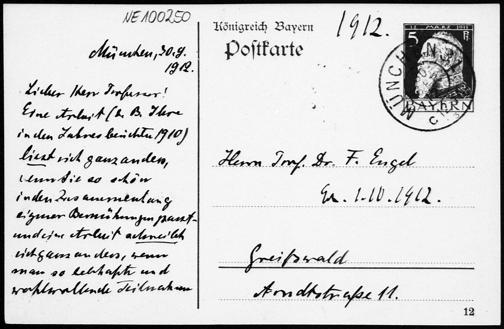 NE100250
München, 30.9.
1912.
Lieber Herr Professor!
Eine Arbeit (z. B. Ihre
in den Jahresberichten 1910)
liest sich ganz anders,
wenn sie so schön
in den Zusammenhang
eigener Bemühungen passt -
und eine Arbeit schreibt
sich ganz anders, wenn
man so lebhafte und
wohlwollende Teilnahme
Königreich Bayern
Postkarte
1912.
5 Pf
BAYERN
MÜNCHEN
Herrn Prof. Dr. F. Engel
1.10.1912.
Greifswald
Arndtstraße 11.
12